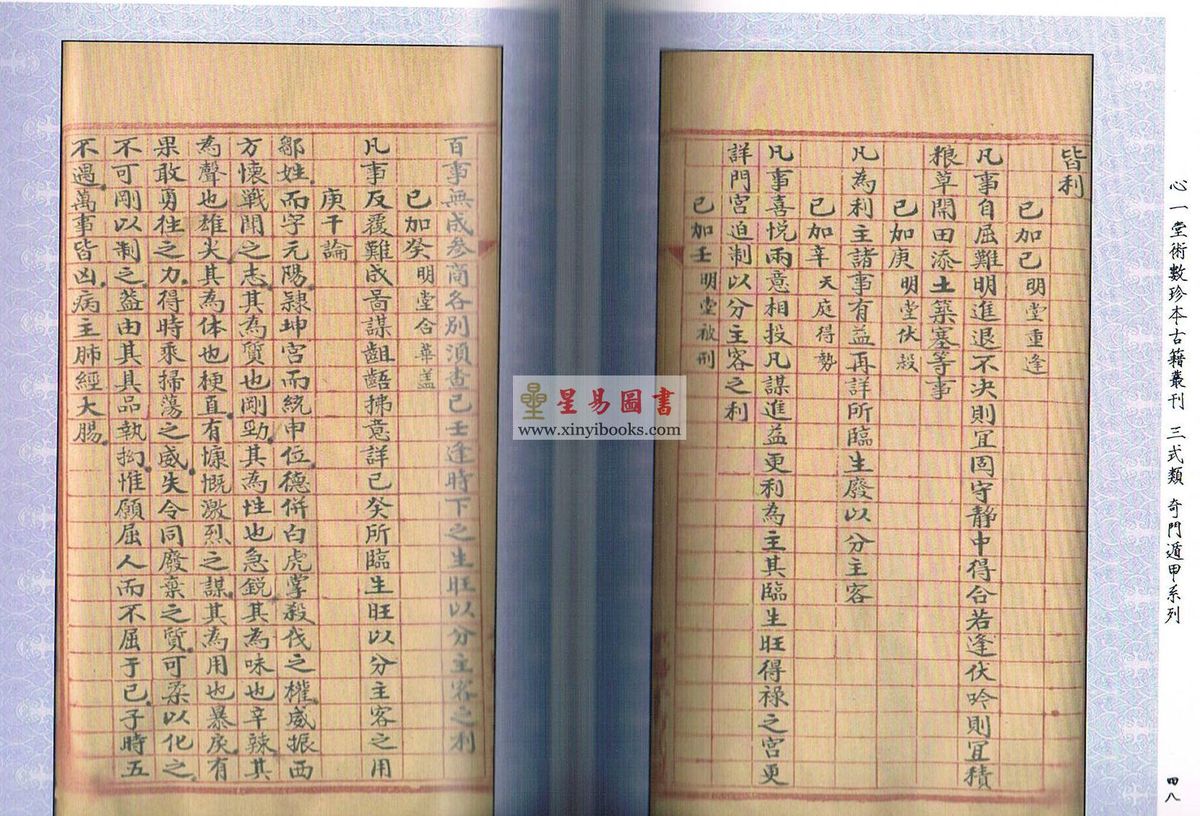 心一堂術數珍本古籍叢刊 三式類 奇門遁甲系列
四八
皆利
已加已 明堂重逢
凡事自屈難明進退不决則宜固守靜中得合若逢伏吟則宜積
粮草開田添土築墓等事
已加庚 明堂伏殺
凡為利主諸事有益再詳所臨生廢以分主客
已加辛 天庭得勢
凡事喜悅兩意相投凡謀進益更利為主其臨生旺得祿之宮更
詳門宮迫制以分主客之利
已加壬 明堂被刑
百事無成參商各別須查已壬逢時下之生旺以分主客之利
已加癸 明堂合華盖
凡事反覆難成啚謀齟齬拂意詳已癸所臨生旺以分主客之用
庚干論
鄒姓而字元陽隸坤宮而統申位德併白虎掌殺伐之權威振西
方懷戰鬪之志其為質也剛勁其為性也急銳其為味也辛辣其
為聲也雄尖其為体也梗直有慷慨激烈之謀其為用也暴戾有
果敢勇往之力得時乘掃蕩之威失令同廢棄之質可柔以化之
不可剛以制之盖由其具品執拗惟願屈人而不屈于已子時五
不遇萬事皆凶病主肺經大腸
星易圖書
www.xinyibooks.com